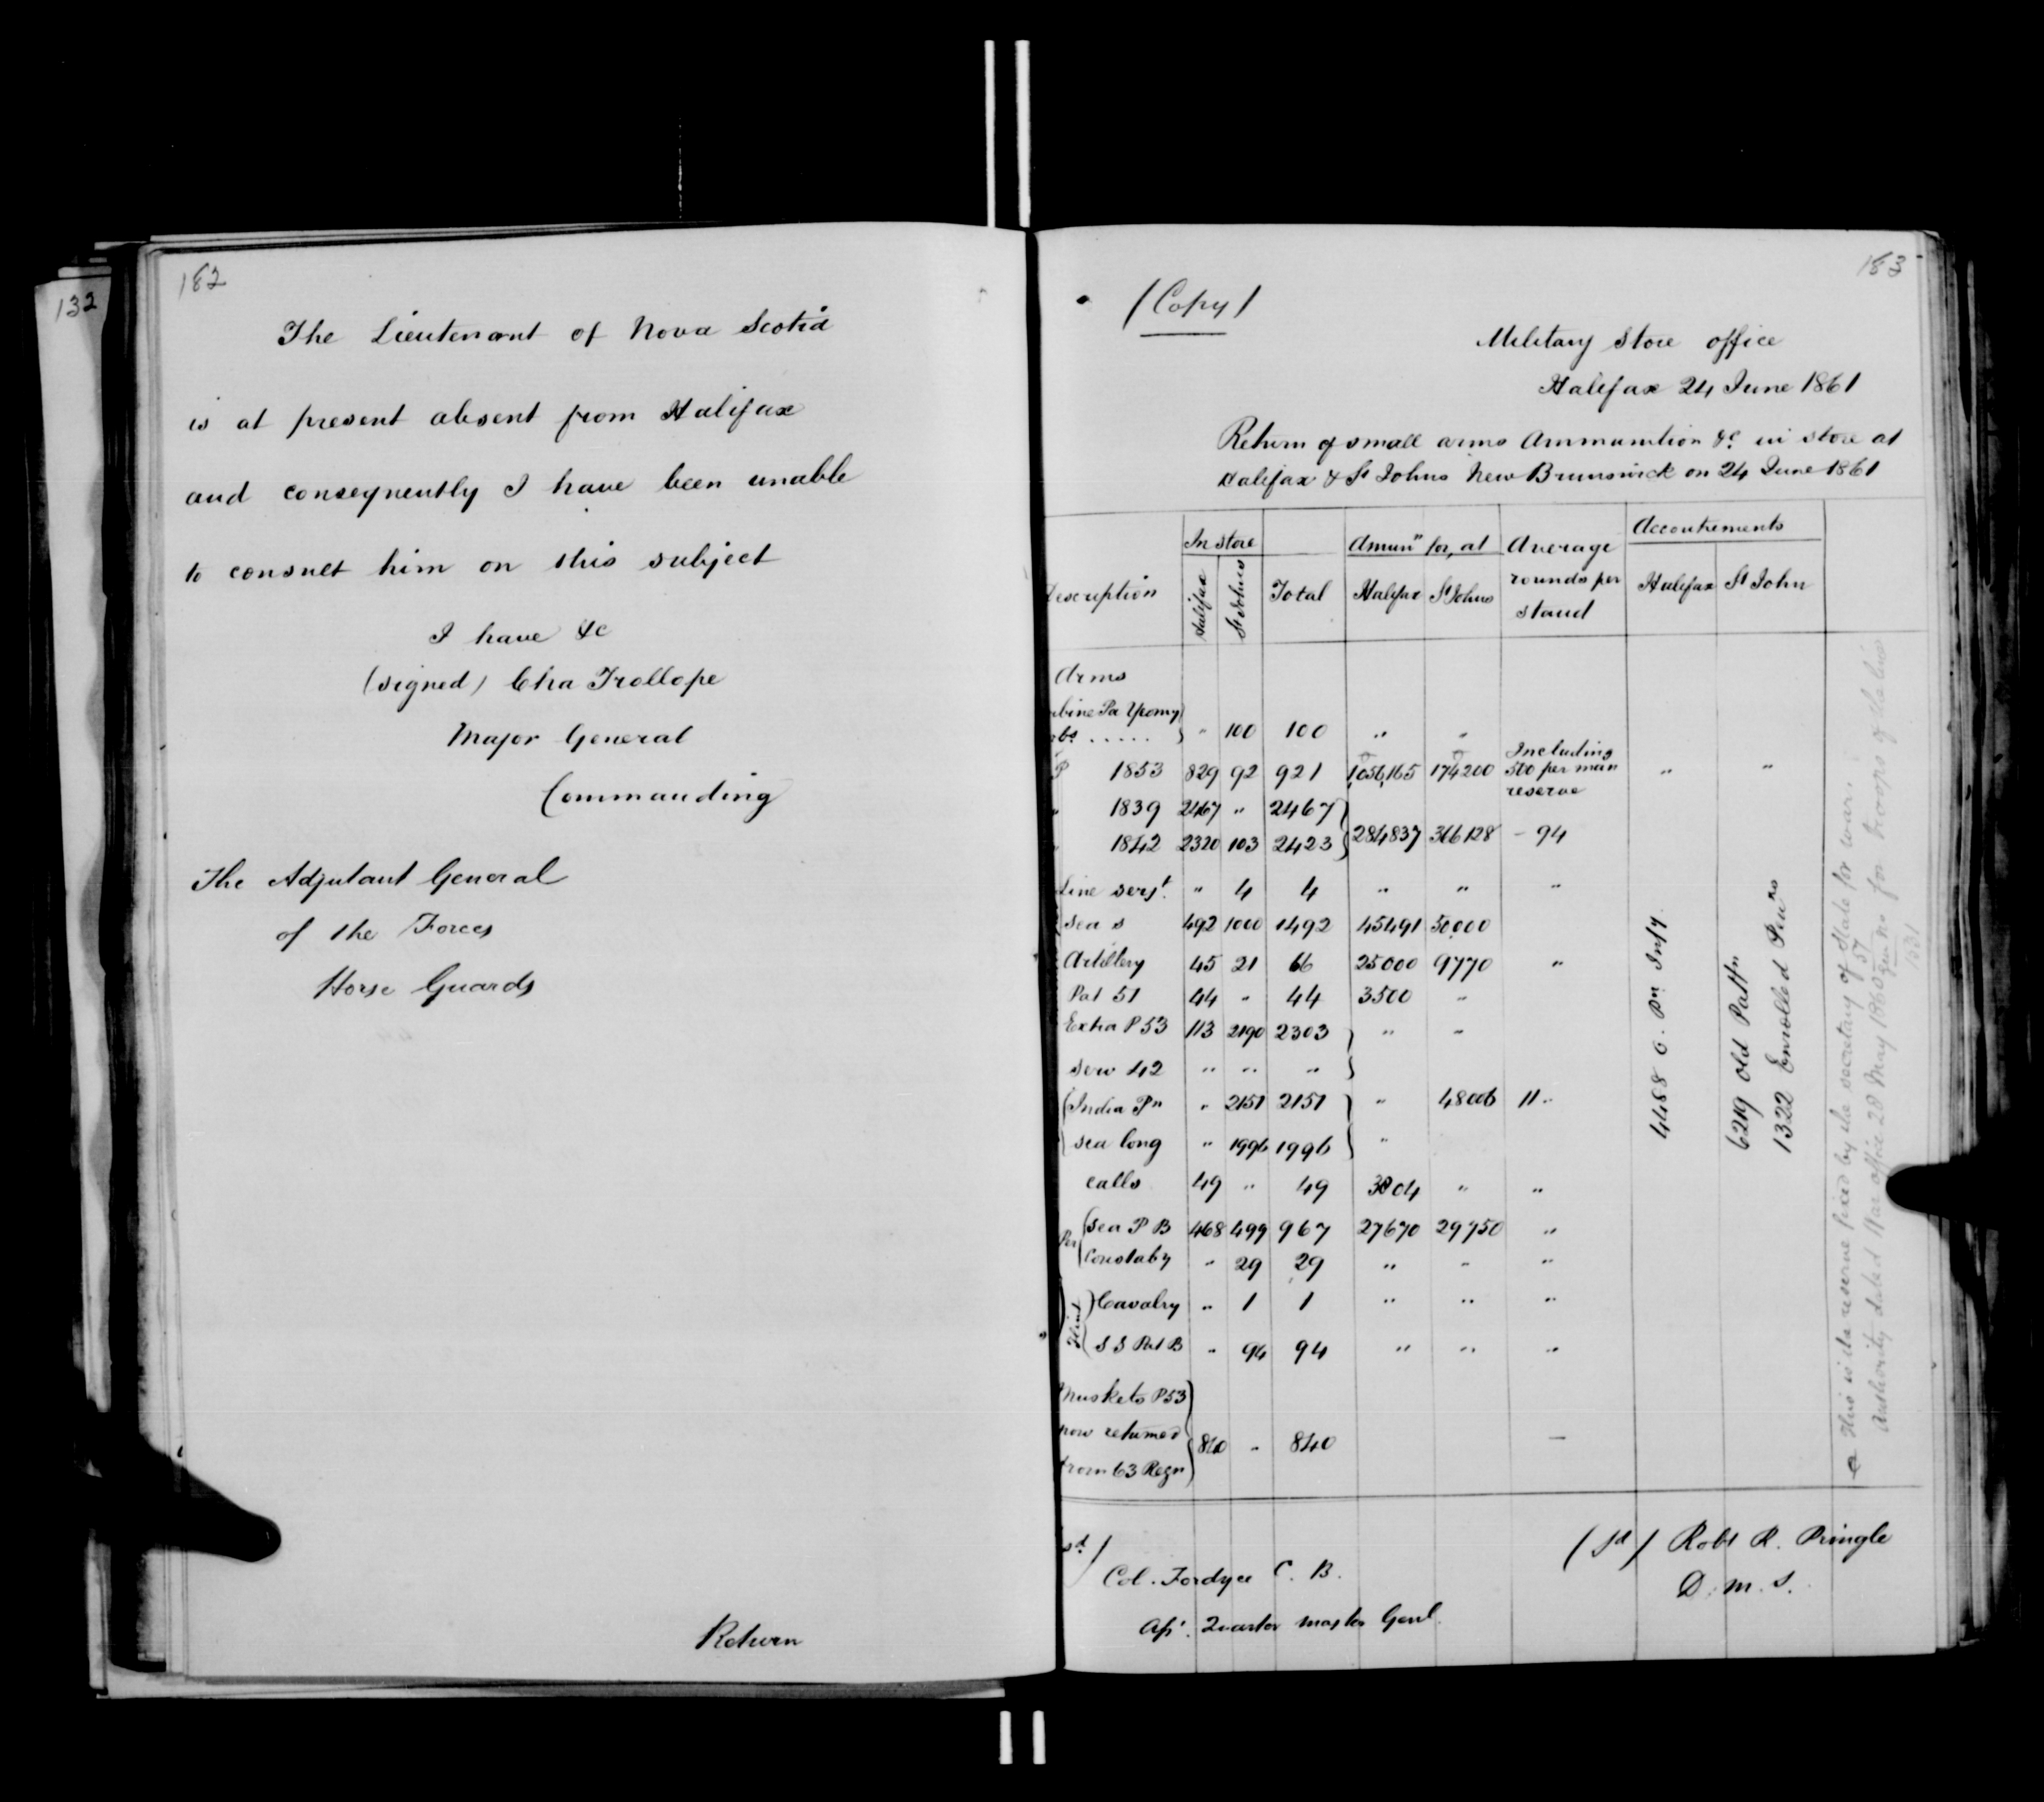 132
182
The Lieutenant of Nova Scotia
is at present absent from Halifax
and consequently I have been unable
to consult him on this subject
I have &c
(signed) Cha Trollope
Major General
Commanding
The Adjutant General
of the Forces
Horse Guards
Return
183
(Copy)
Military Store office
Halifax 24 June 1861
Return of small arms Ammunition &c. in store at
Halifax & St Johns New Brunswick on 24 June 1861
Description | In store Halifax | St Johns | Total | Amunn for, at Halifax | St Johns | Average rounds per stand | Accoutrements Halifax | St John
Arms
bine Pa Yeomy } " 100 100 " "
P 1853 829 92 921 1,056,165 174200 Including 500 per man reserve " "
" 1839 2467 " 2467 }
" 1842 2320 103 2423 } 284837 366128 - 94
Line sergt. " 4 4 " " "
Sea s 492 1000 1492 45491 50,000
Artillery 45 21 66 25000 9770 "
Pat 51 44 " 44 3500 "
Extra P 53 113 2190 2303 } " "
Serv 42 " " " }
India Pn " 2151 2151 } " 48006 11 "
Sea long " 1996 1996 } "
calls 49 " 49 3804 " "
Sea P B 468 499 967 27670 29750 "
Constaby " 29 29 " " "
Flint
Cavalry " 1 1 " " "
S S Pat B " 94 94 " " "
Muskets P 53
now returned
from 63 Regn } 840 " 840 —
4488 O. Pn Infy.
6219 Old Pattn
1322 Enrolled Penrs
This is the reserve fixed by the secretary of State for war.
Authority dated War office 28 May 1860 for troops of the line
(sd)
Col. Fordyce C. B.
Quarter Master Genl.
(Sd) Robt R. Pringle
D. M. S.